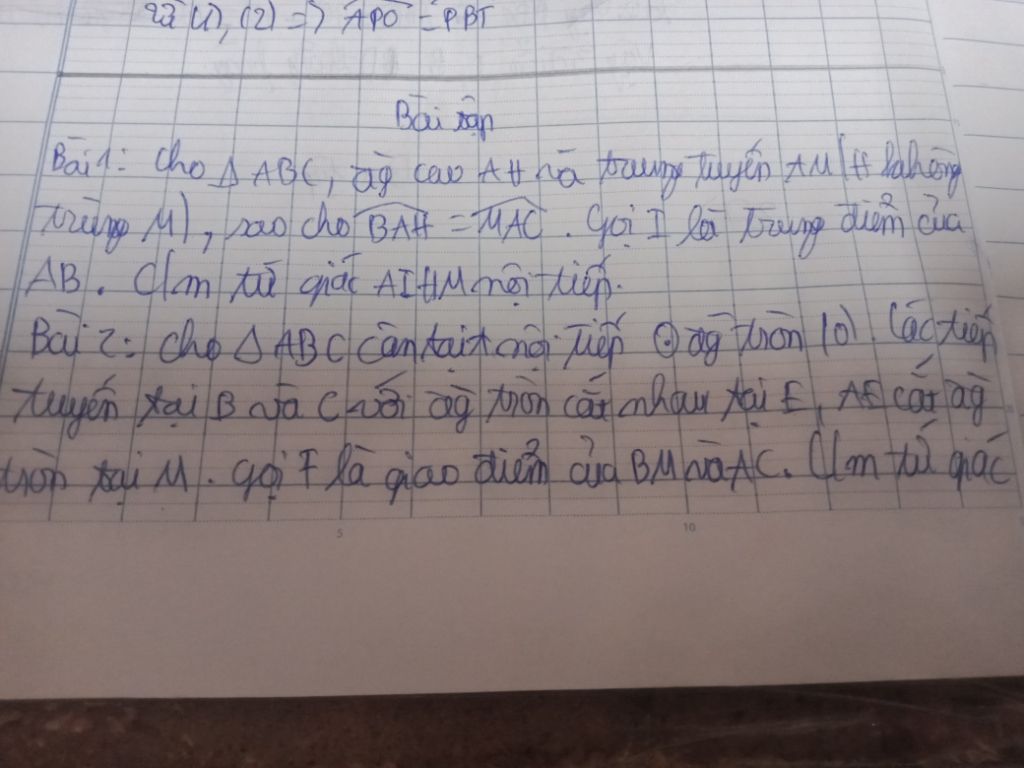 và (1), (2) => APO = PBT
Bài tập
Bài 1: cho Δ ABC, đg cao AH và trung tuyến AM (H không
trùng M), sao cho BAH = MAC. Gọi I là trung điểm của
AB. C/m tứ giác AIHM nội tiếp.
Bài 2: cho Δ ABC cân tại A nội tiếp đg tròn (O). Các tiếp
tuyến tại B và C với đg tròn cắt nhau tại E, AE cắt đg
tròn tại M. Gọi F là giao điểm của BM và AC. C/m tứ giác
5 10